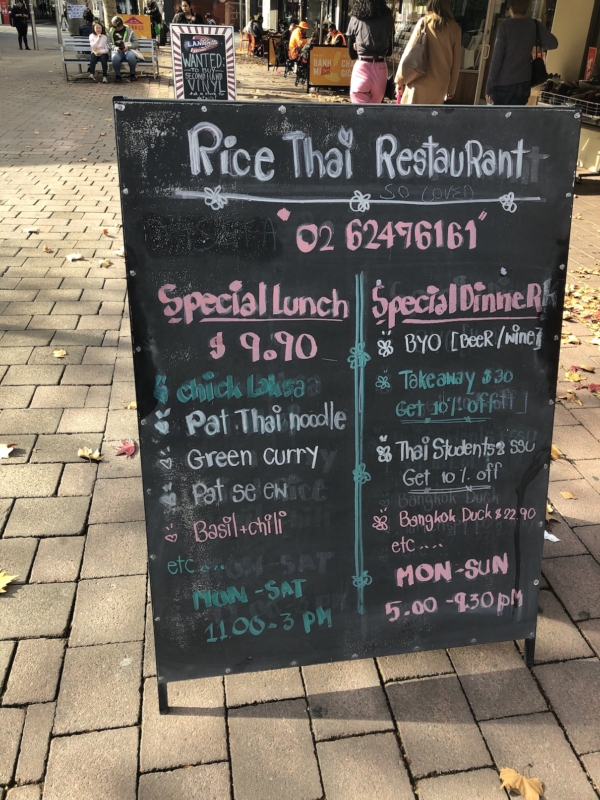 WANTED
TO BUY
SECONDHAND
VINYL
Rice Thai Restaurant
"02 62476161"
Special Lunch
$ 9.90
chick Laksa
Pat Thai noodle
Green curry
Pat se ew
Basil+chili
etc....
MON-SAT
11.00-3 PM
Special Dinner
BYO [Beer/wine]
Takeaway $30
Get 10% off
Thai Students & SSU
Get 10% off
Bangkok Duck $22.90
etc....
MON-SUN
5.00-9.30 PM